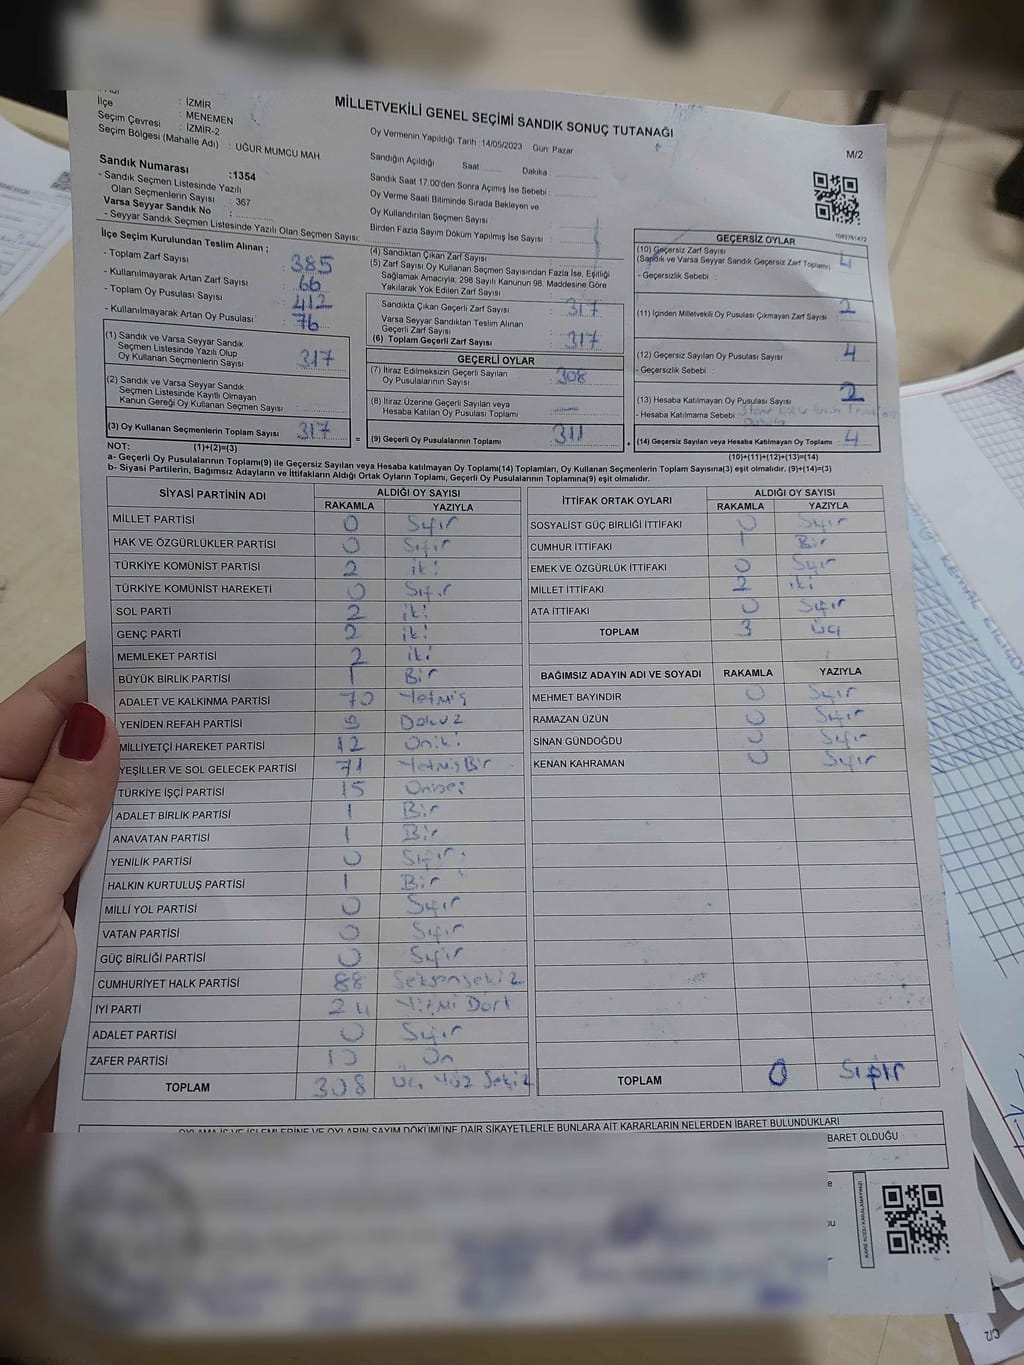 MİLLETVEKİLİ GENEL SEÇİMİ SANDIK SONUÇ TUTANAĞI
M/2
: İZMİR
İlçe : MENEMEN
Seçim Çevresi : İZMİR-2
Seçim Bölgesi (Mahalle Adı) : UĞUR MUMCU MAH.
Sandık Numarası :1354
- Sandık Seçmen Listesinde Yazılı
Olan Seçmenlerin Sayısı : 367
Varsa Seyyar Sandık No :
- Seyyar Sandık Seçmen Listesinde Yazılı Olan Seçmen Sayısı:
Oy Vermenin Yapıldığı Tarih :14/05/2023 Gün: Pazar
Sandığın Açıldığı Saat Dakika
Sandık Saat 17:00'den Sonra Açımış İse Sebebi :
Oy Verme Saati Bitiminde Sırada Bekleyen ve
Oy Kullandırılan Seçmen Sayısı
Birden Fazla Sayım Döküm Yapılmış İse Sayısı
İlçe Seçim Kurulundan Teslim Alınan ;
- Toplam Zarf Sayısı : 385
- Kullanılmayarak Artan Zarf Sayısı : 66
- Toplam Oy Pusulası Sayısı : 412
- Kullanılmayarak Artan Oy Pusulası : 76
(1) Sandık ve Varsa Seyyar Sandık
Seçmen Listesinde Yazılı Olup
Oy Kullanan Seçmenlerin Sayısı : 317
(2) Sandık ve Varsa Seyyar Sandık
Seçmen Listesinde Kayıtlı Olmayan
Kanun Gereği Oy Kullanan Seçmen Sayısı
(3) Oy Kullanan Seçmenlerin Toplam Sayısı : 317
(1)+(2)=(3)
(4) Sandıktan Çıkan Zarf Sayısı
(5) Zarf Sayısı Oy Kullanan Seçmen Sayısından Fazla İse, Eşitliği
Sağlamak Amacıyla; 298 Sayılı Kanunun 98. Maddesine Göre
Yakılarak Yok Edilen Zarf Sayısı
Sandıkta Çıkan Geçerli Zarf Sayısı : 317
Varsa Seyyar Sandıktan Teslim Alınan
Geçerli Zarf Sayısı
(6) Toplam Geçerli Zarf Sayısı : 317
GEÇERLİ OYLAR
(7) İtiraz Edilmeksizin Geçerli Sayılan
Oy Pusulalarının Sayısı : 308
(8) İtiraz Üzerine Geçerli Sayılan veya
Hesaba Katılan Oy Pusulası Toplamı
= (9) Geçerli Oy Pusulalarının Toplamı 311
GEÇERSİZ OYLAR
(10) Geçersiz Zarf Sayısı
(Sandık ve Varsa Seyyar Sandık Geçersiz Zarf Toplamı) 4
- Geçersizlik Sebebi :
(11) İçinden Milletvekili Oy Pusulası Çıkmayan Zarf Sayısı 2
(12) Geçersiz Sayılan Oy Pusulası Sayısı : 4
- Geçersizlik Sebebi :
(13) Hesaba Katılmayan Oy Pusulası Sayısı : 2
- Hesaba Katılmama Sebebi
+ (14) Geçersiz Sayılan veya Hesaba Katılmayan Oy Toplamı : 4
(10)+(11)+(12)+(13)=(14)
NOT:
a- Geçerli Oy Pusulalarının Toplamı(9) ile Geçersiz Sayılan veya Hesaba katılmayan Oy Toplamı(14) Toplamları, Oy Kullanan Seçmenlerin Toplam Sayısına(3) eşit olmalıdır. (9)+(14)=(3)
b- Siyasi Partilerin, Bağımsız Adayların ve İttifakların Aldığı Ortak Oyların Toplamı, Geçerli Oy Pusulalarının Toplamına(9) eşit olmalıdır.
SİYASİ PARTİNİN ADI ALDIĞI OY SAYISI
RAKAMLA YAZIYLA
MİLLET PARTİSİ 0 Sıfır
HAK VE ÖZGÜRLÜKLER PARTİSİ 0 Sıfır
TÜRKİYE KOMÜNİST PARTİSİ 2 iki
TÜRKİYE KOMÜNİST HAREKETİ 0 Sıfır
SOL PARTİ 2 iki
GENÇ PARTİ 2 iki
MEMLEKET PARTİSİ 2 iki
BÜYÜK BİRLİK PARTİSİ 1 Bir
ADALET VE KALKINMA PARTİSİ 70 Yetmiş
YENİDEN REFAH PARTİSİ 9 Dokuz
MİLLİYETÇİ HAREKET PARTİSİ 12 Oniki
YEŞİLLER VE SOL GELECEK PARTİSİ 71 YetmişBir
TÜRKİYE İŞÇİ PARTİSİ 15 Onbeş
ADALET BİRLİK PARTİSİ 1 Bir
ANAVATAN PARTİSİ 1 Bir
YENİLİK PARTİSİ 0 Sıfır
HALKIN KURTULUŞ PARTİSİ 1 Bir
MİLLİ YOL PARTİSİ 0 Sıfır
VATAN PARTİSİ 0 Sıfır
GÜÇ BİRLİĞİ PARTİSİ 0 Sıfır
CUMHURİYET HALK PARTİSİ 88 Seksensekiz
İYİ PARTİ 24 Yirmi Dört
ADALET PARTİSİ 0 Sıfır
ZAFER PARTİSİ 10 On
TOPLAM 308 Üç Yüz Sekiz
İTTİFAK ORTAK OYLARI ALDIĞI OY SAYISI
RAKAMLA YAZIYLA
SOSYALİST GÜÇ BİRLİĞİ İTTİFAKI 0 Sıfır
CUMHUR İTTİFAKI 1 Bir
EMEK VE ÖZGÜRLÜK İTTİFAKI 0 Sıfır
MİLLET İTTİFAKI 2 iki
ATA İTTİFAKI 0 Sıfır
TOPLAM 3 üç
BAĞIMSIZ ADAYIN ADI VE SOYADI RAKAMLA YAZIYLA
MEHMET BAYINDIR 0 Sıfır
RAMAZAN ÜZÜN 0 Sıfır
SİNAN GÜNDOĞDU 0 Sıfır
KENAN KAHRAMAN 0 Sıfır
TOPLAM 0 Sıfır
OYLAMA İŞ VE İŞLEMLERİNE VE OYLARIN SAYIM DÖKÜMÜNE DAİR ŞİKAYETLERLE BUNLARA AİT KARARLARIN NELERDEN İBARET BULUNDUKLARI
BARET OLDUĞU
KARE KODU KARALAMAYINIZ!
C/2